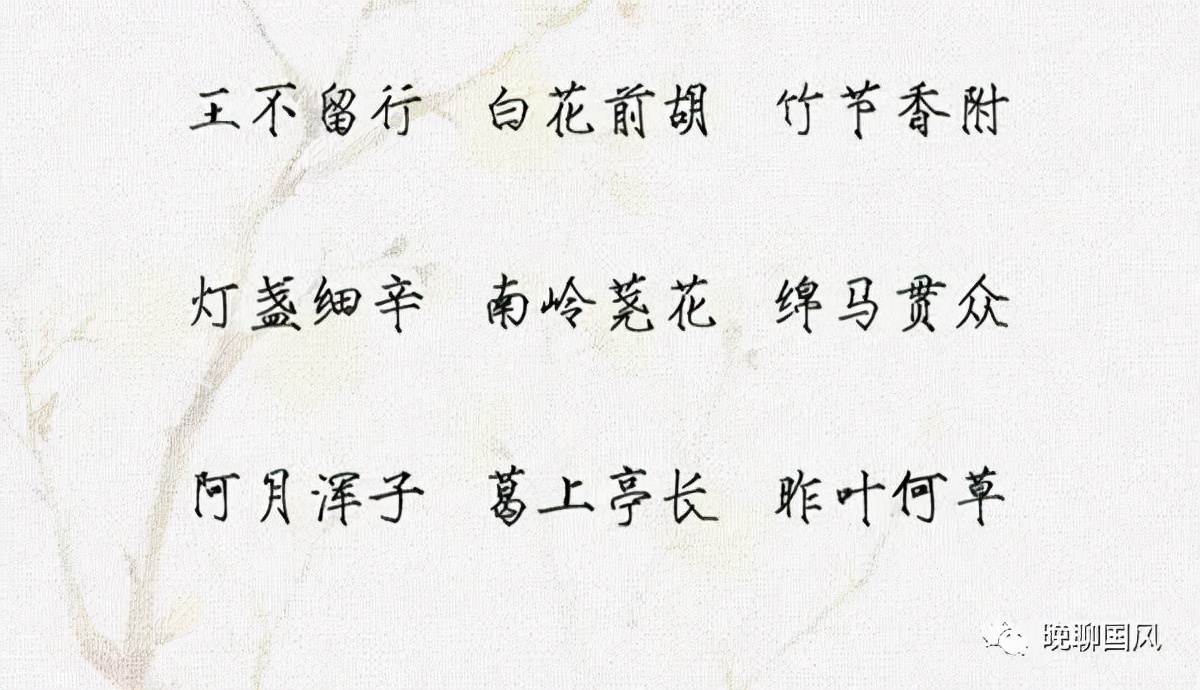 王不留行 白花前胡 竹节香附
灯盏细辛 南岭荛花 绵马贯众
阿月浑子 葛上亭长 昨叶何草
晚聊国风